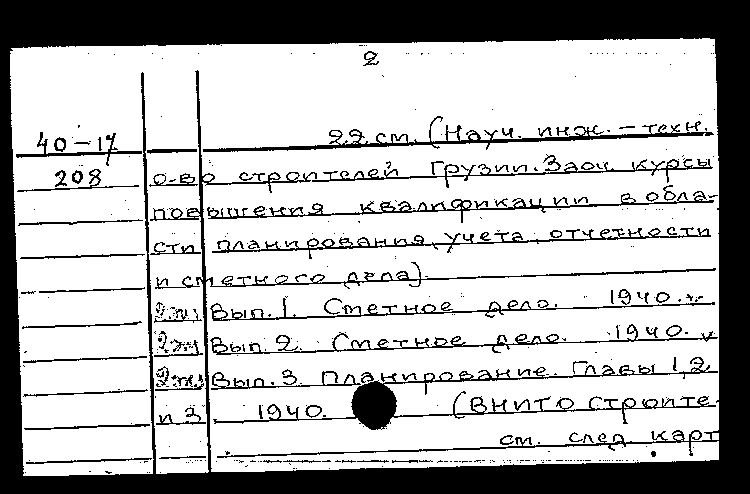 2
40-17 22 см. (Науч. инж. - техн.
208 о-во строителей Грузии. Заоч. курсы
повышения квалификации в обла-
сти планирования, учета, отчетности
и сметного дела).
2эк. Вып. 1. Сметное дело. 1940. v
2эк Вып. 2. Сметное дело. 1940. v
2эк. Вып. 3. Планирование. Главы 1, 2
и 3. 1940. (ВНИТО строите-
см. след. карт